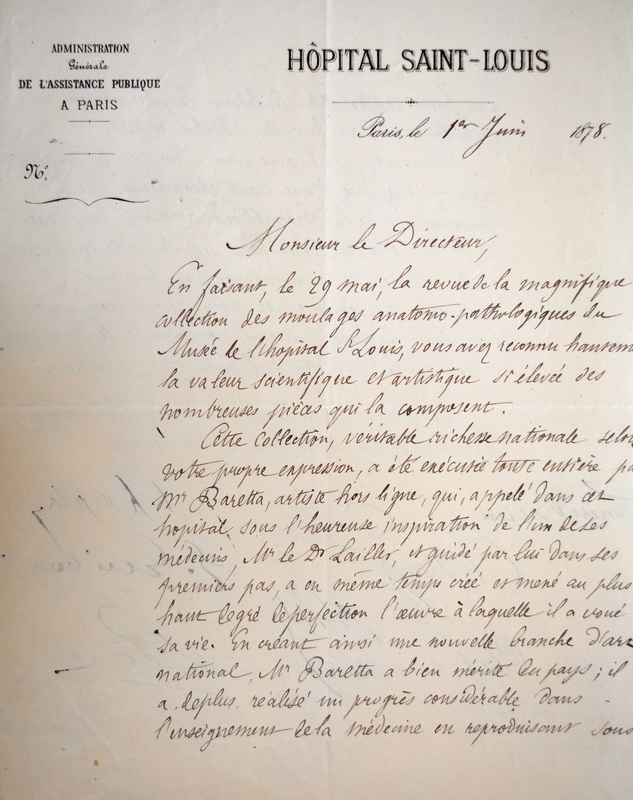 ADMINISTRATION
Générale
DE L'ASSISTANCE PUBLIQUE
A PARIS
HÔPITAL SAINT-LOUIS
Paris, le 1er Juin 1878.
N°
Monsieur le Directeur,
En faisant, le 29 mai, la revue de la magnifique
collection des moulages anatomo-pathologiques du
Musée de l'hopital St Louis, vous avez reconnu hautem
la valeur scientifique et artistique si élevée des
nombreuses pièces qui la composent.
Cette collection, véritable richesse nationale selon
votre propre expression, a été exécutée toute entière pa
Mr Baretta, artiste hors ligne, qui, appelé dans cet
hopital, sous l'heureuse inspiration de l'un de ses
médecins, Mr le Dr Lailler, et guidé par lui dans ses
premiers pas, a en même temps créé et mené au plus
haut degré de perfection l'œuvre à laquelle il a voué
sa vie. En créant ainsi une nouvelle branche d'art
national, Mr Baretta a bien mérité du pays ; il
a, de plus, réalisé un progrès considérable dans
l'enseignement de la médecine en reproduisant sous